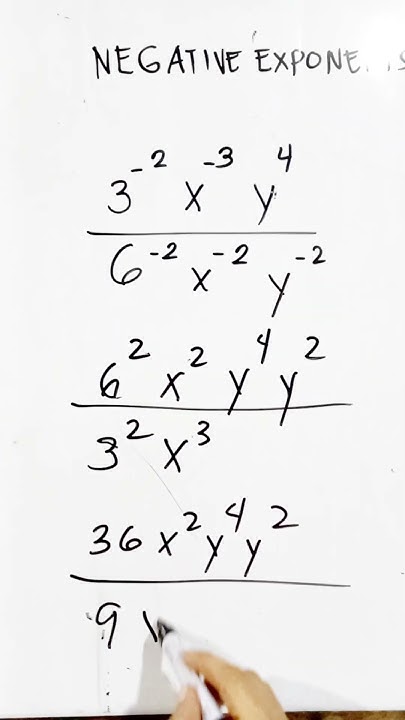 NEGATIVE EXPONE
3⁻² x⁻³ y⁴
6⁻² x⁻² y⁻²
6² x² y⁴ y²
3² x³
36 x² y⁴ y²
9